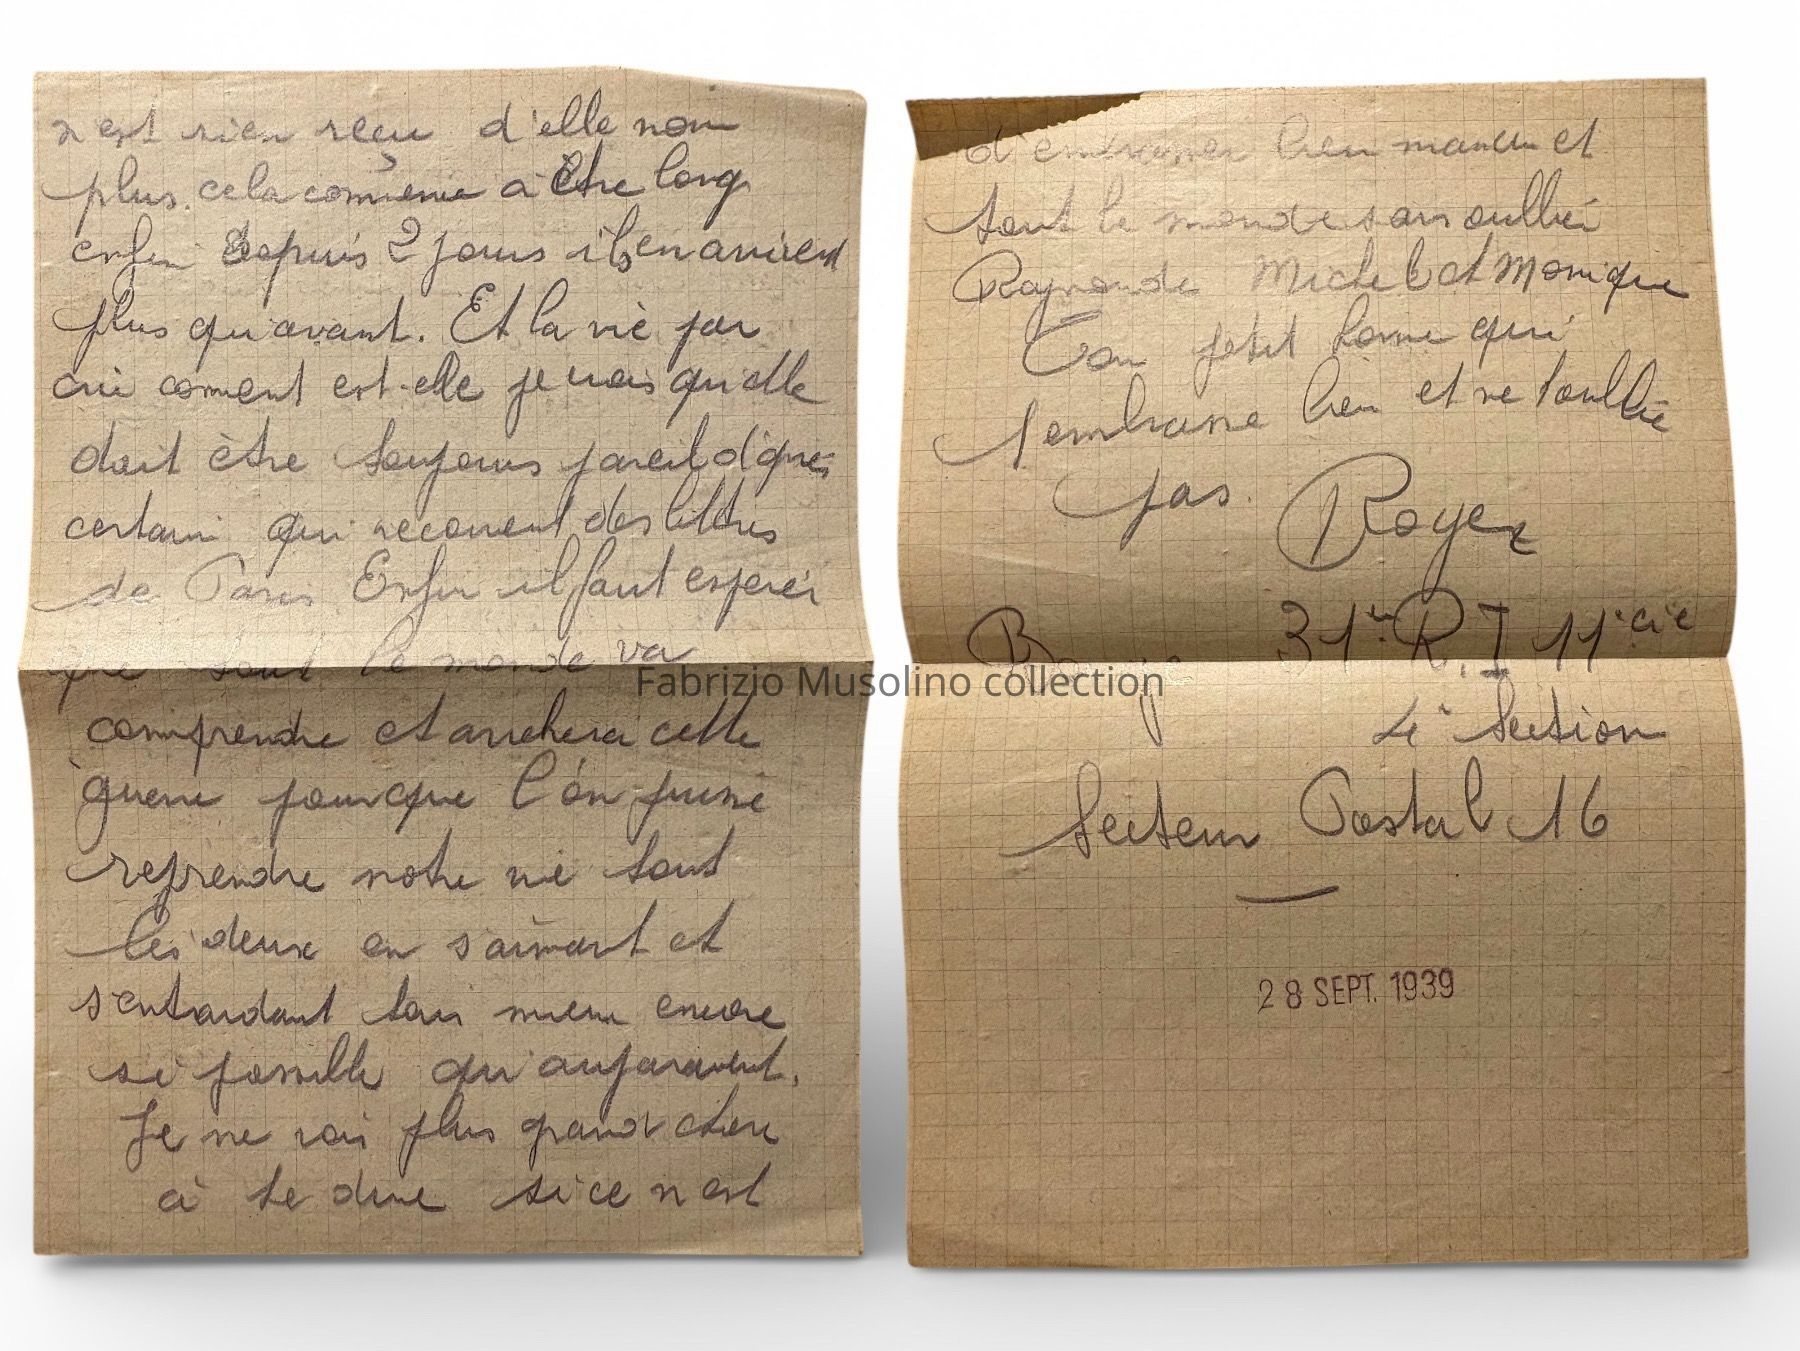 n'est rien reçu d'elle non
plus. cela commence à être long
enfin depuis 2 jours ils en arrivent
plus qu'avant. Et la vie par
ou coment est-elle je crois qu'elle
doit être toujours pareil d'après
certain qui recoivent des lettres
de Paris Enfin il faut esperer
que tout le monde va
comprendre et arretera cette
guerre pour que l'on puisse
reprendre notre vie tout
les deux en s'aimant et
s'entandant bien mieux encore
si possible qu'auparavent.
Je ne vois plus grand chose
à te dire si ce n'est
d'embrasser bien maman et
tout le monde sans oublier
Raymonde Michel et Monique
Ton petit home qui
t'embrasse bien et ne t'oublie
pas. Roger
31e R.I 11e Cie
4e Section
Secteur Postal 16
28 SEPT. 1939
Fabrizio Musolino collection